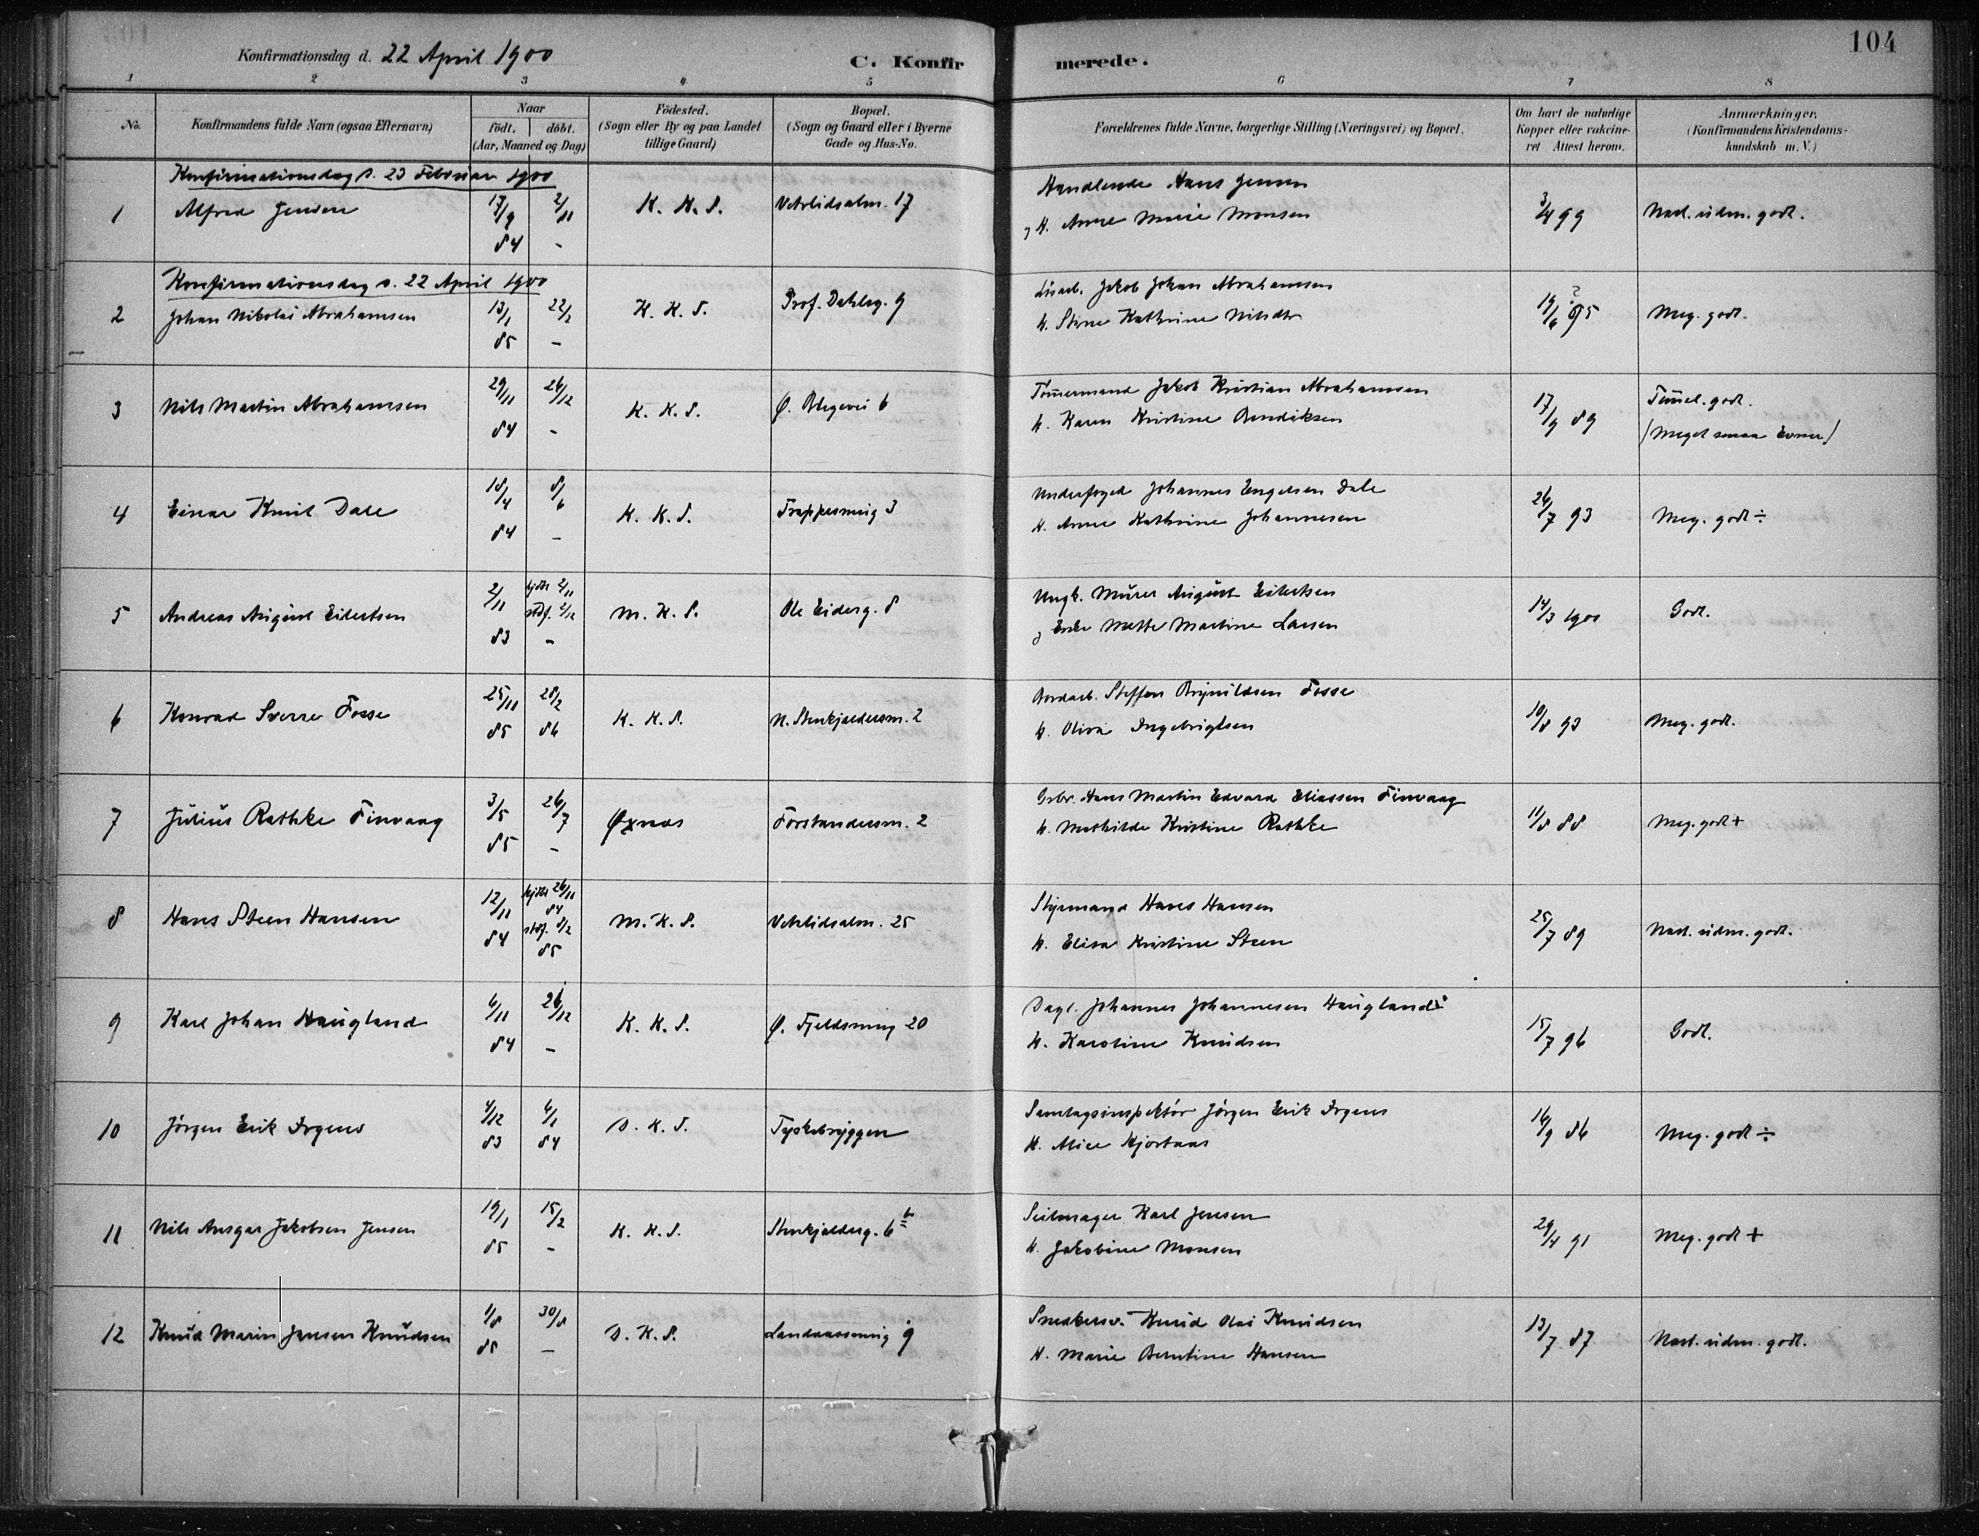 Konfirmationsdag d. 22 April 1900
C. Konfirmerede.
104
1 2 3 4 5 6 7 8
No.
Konfirmandens fulde Navn (ogsaa Efternavn)
Naar
födt. döbt.
(Aar, Maaned og Dag)
Födested.
(Sogn eller By og paa Landet
tillige Gaard)
Bopæl.
(Sogn og Gaard eller i Byerne
Gade og Hus-No.
Forældrenes fulde Navne, borgerlige Stilling (Næringsvei) og Bopæl.
Om havt de naturlige
Kopper eller vakcine-
ret Attest herom.
Anmærkninger.
(Konfirmandens Kristendoms-
kundskab m. V.)
Konfirmationsdag d. 23 Februar 1900
1 Alfred Jensen 17/9 84 2/11 - K. K. S. Vetrlidsalm. 17
Handlende Hans Jensen
H. Anne Marie Monsen
3/4 99 Nast. udm. godt.
Konfirmationsdag d. 22 April 1900
2 Johan Nikolai Abrahamsen 13/1 85 22/2 - K. K. S. Prof. Dahlsg. 9
Lösarb. Jakob Johan Abrahamsen
H. Stine Kathrine Nilsdtr
19/6 95 ? Meg. godt.
3 Nils Martin Abrahamsen 29/11 84 26/12 - K. K. S. Ø. Blegevei 6
Tömmermand Jakob Kristian Abrahamsen
H. Karen Kristine Bendiksen
17/9 89 Temmel. godt.
(Meget smaa Evner)
4 Einar Emil Dale 18/4 84 8/6 - K. K. S. Trappesmug 3
Underfoged Johannes Engelsen Dale
H. Anne Kathrine Johannesen
26/7 93 Meg. godt ÷
5 Andreas August Eilertsen 2/11 83 hjdbt 2/11 stdf. 2/12 - M. K. S. Ole Eidesg. 8
Ungk. Murer August Eilertsen
og Enke Mette Martine Larsen
14/3 1900 Godt.
6 Konrad Sverre Fosse 25/11 85 28/2 86 K. K. S. N. Stenkjeldersm. 2
Bordarb. Steffen Brynildsen Fosse
H. Oliva Ingebrigtsen
10/8 93 Meg. godt.
7 Julius Rathke Finvaag 3/5 85 26/7 - Øxnes Forstandersm. 2
Gbr. Hans Martin Edvard Eliassen Finvaag
H. Mathilde Kristine Rathke
11/8 88 Meg. godt +
8 Hans Steen Hansen 12/11 84 hjdbt 26/11 84 stdf. 8/2 85 M. K. S. Vetrlidsalm. 25
Styrmand Hans Hansen
H. Elisa Kristine Steen
25/7 89 Nast. udm. godt.
9 Karl Johan Haugland 6/11 84 26/12 - K. K. S. Ø. Fjeldsmug 20
Dagl. Johannes Johannesen Haugland
H. Karoline Knudsen
15/7 96 Godt.
10 Jörgen Erik Irgens 4/12 83 6/1 84 D. K. S. Tyskebryggen
Samlagsinspektör Jörgen Erik Irgens
H. Alice Hjortaas
16/9 86 Meg. godt ÷
11 Nils Ansgar Jakobsen Jensen 19/1 85 15/2 - K. K. S. Stenkjelderg. 6 b
Seilmager Karl Jensen
H. Jakobine Monsen
29/4 91 Meg. godt +
12 Knud Marin Jensen Knudsen 1/8 85 30/8 - D. K. S. Landaassmug 9
Snedkersv. Knud Olai Knudsen
H. Marie Berntine Hansen
13/7 87 Nast. udm. godt.